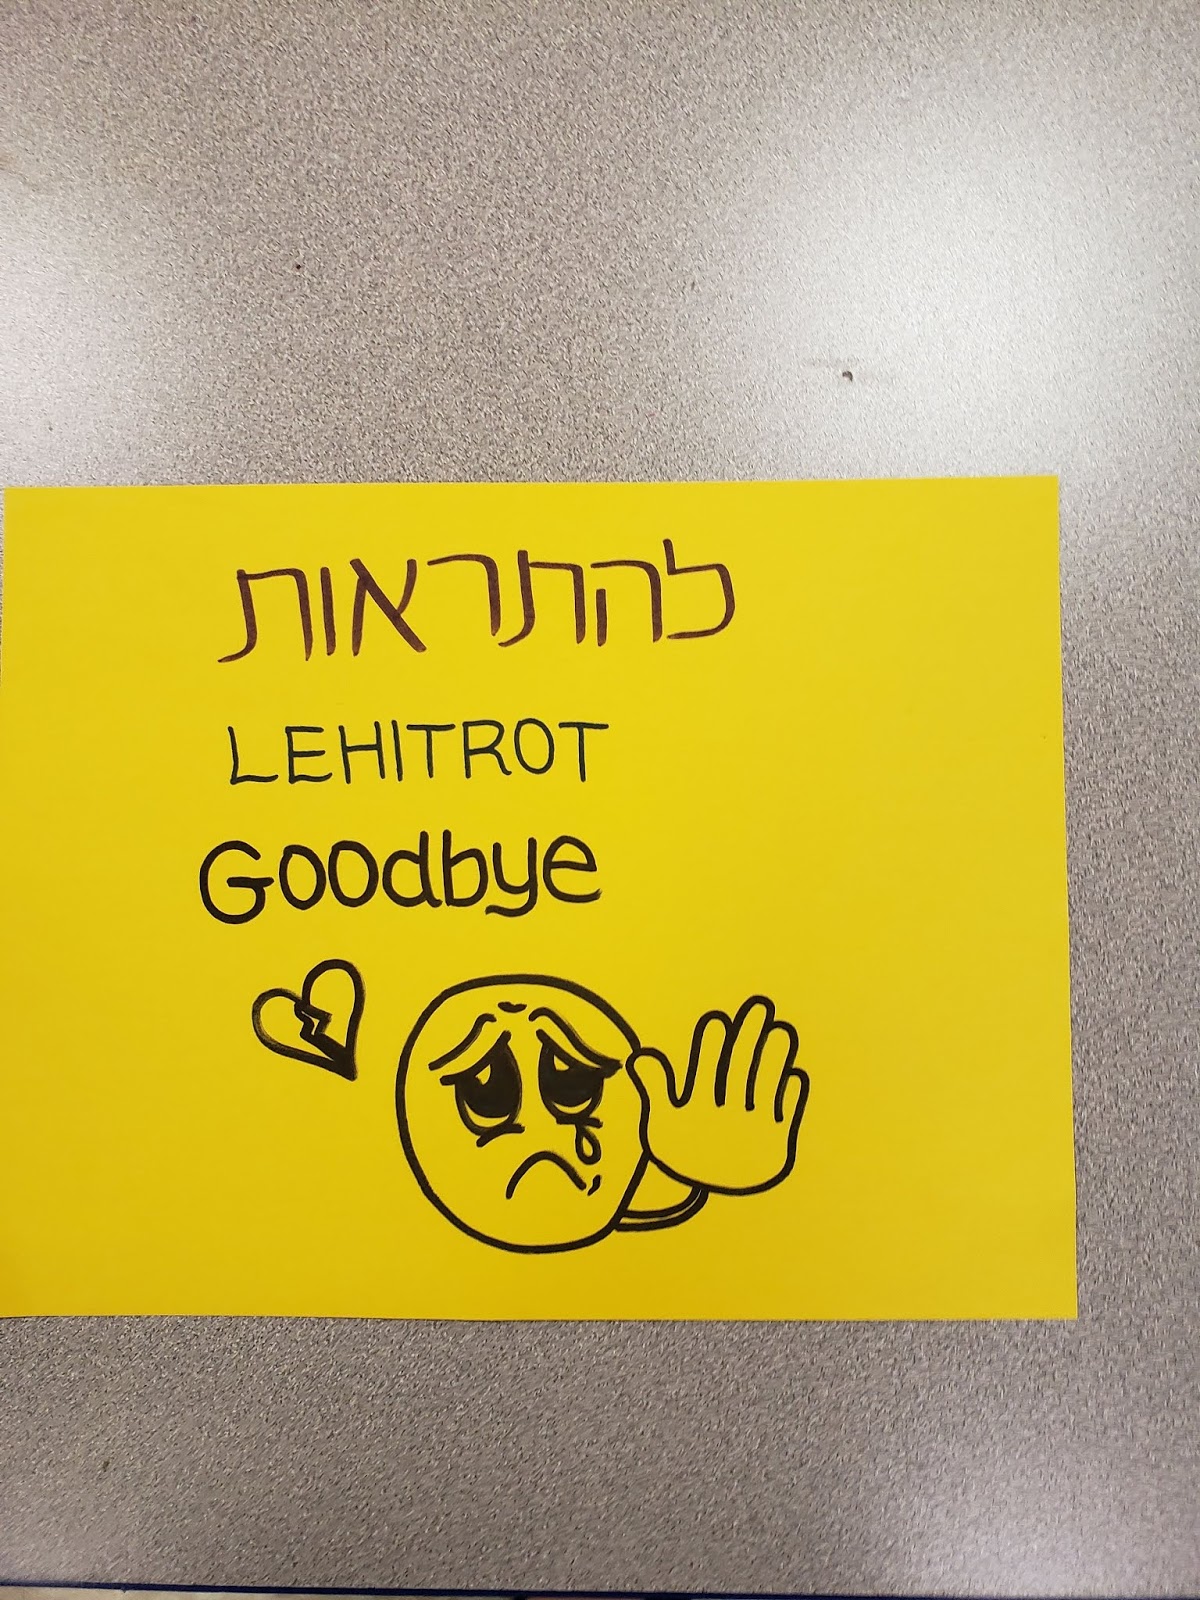 להתראות
LEHITROT
Goodbye